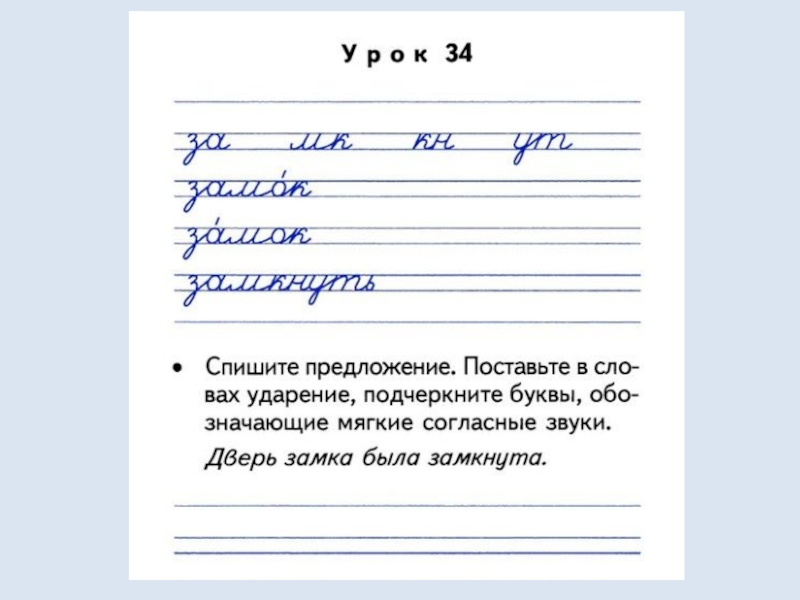 Урок 34
за мк кн ут
замо́к
за́мок
замкнуть
• Спишите предложение. Поставьте в сло-
вах ударение, подчеркните буквы, обо-
значающие мягкие согласные звуки.
Дверь замка была замкнута.